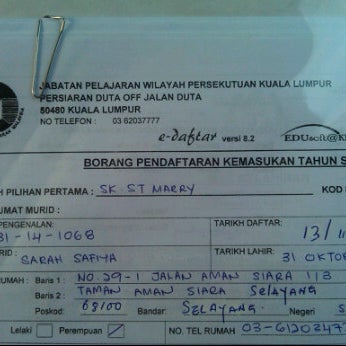 JABATAN PELAJARAN WILAYAH PERSEKUTUAN KUALA LUMPUR
PERSIARAN DUTA OFF JALAN DUTA
50480 KUALA LUMPUR
NO TELEFON : 03 62037777
e-daftar versi 8.2 EDUsoft@K
BORANG PENDAFTARAN KEMASUKAN TAHUN S
H PILIHAN PERTAMA : SK ST MARRY KOD
UMAT MURID :
PENGENALAN: TARIKH DAFTAR:
31-14-1068 13/11
RID : SARAH SAFIYA TARIKH LAHIR: 31 OKTO
RUMAH : Baris 1 : NO. 29-1 JALAN AMAN SIARA 1/3
Baris 2 : TAMAN AMAN SIARA SELAYANG
Poskod: 68100 Bandar: SELAYANG Negeri S
Lelaki Perempuan / NO. TEL RUMAH 03-61203477